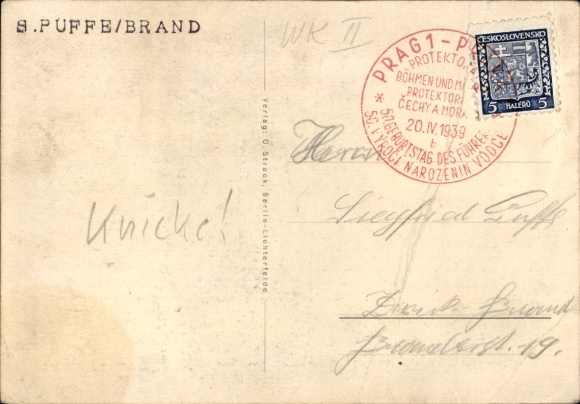 S. PUFFE/BRAND
WK II
PRAG 1 - PR
PROTEKTO
BÖHMEN UND M
PROTEKTOR
ČECHY A MORA
20.IV.1939
b
50. GEBURTSTAG DES FÜHRER
50. VÝROČÍ NAROZENIN VŮDCE
ČESKOSLOVENSKO
5 HALÉŘŮ 5
Verlag: O. Struck, Berlin-Lichterfelde
Knicke!
Herrn
Siegfried Puffe
Brand
19.